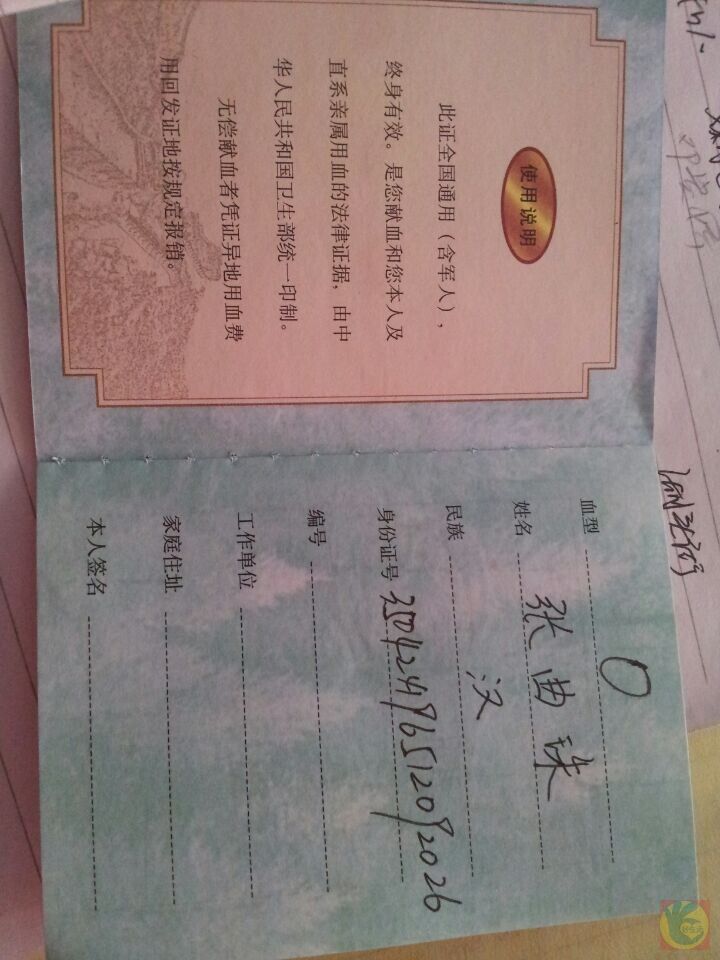 使用说明
此证全国通用（含军人），
终身有效。是您献血和您本人及
直系亲属用血的法律证据，由中
华人民共和国卫生部统一印制。
无偿献血者凭证异地用血费
用回发证地按规定报销。
血型 O
姓名 张曲珠
民族 汉
身份证号 350424196512092026
编号
工作单位
家庭住址
本人签名